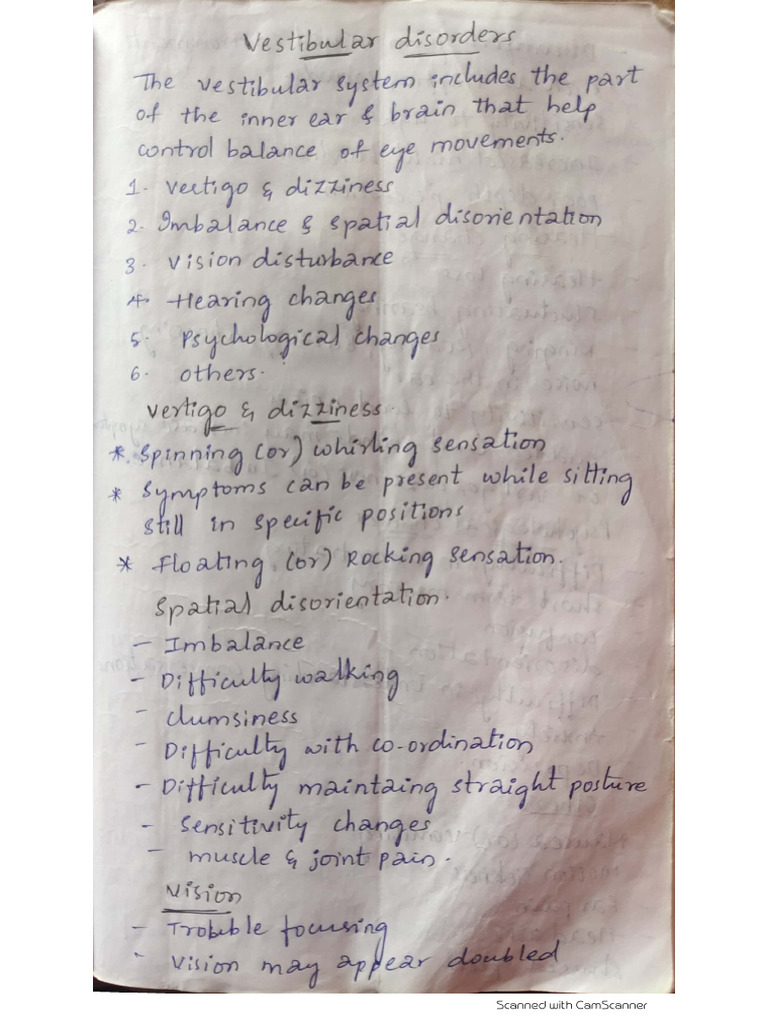 Vestibular disorders
The vestibular system includes the part
of the inner ear & brain that help
control balance of eye movements.
1. Vertigo & dizziness
2. Imbalance & spatial disorientation
3. Vision disturbance
4. Hearing changes
5. Psychological changes
6. others.
Vertigo & dizziness.
* Spinning (or) whirling sensation
* Symptoms can be present while sitting
still in specific positions
* Floating (or) Rocking sensation.
Spatial disorientation.
- Imbalance
- Difficulty walking
- clumsiness
- Difficulty with co-ordination
- Difficulty maintaing straight posture
- Sensitivity changes
- muscle & joint pain.
Vision
- Trobuble focusing
- Vision may appear doubled
Scanned with CamScanner